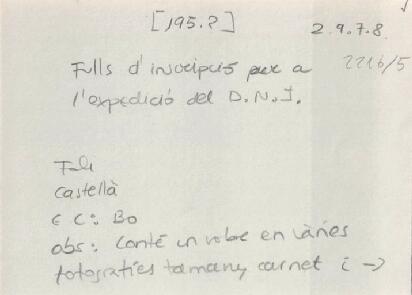 [195.?]
2.9.7.8.
2216/5
Fulls d'inscripció per a
l'expedició del D.N.I.
Fulls
Castellà
E C: Bo
obs: Conté un sobre en vàries
fotografíes tamany carnet i →